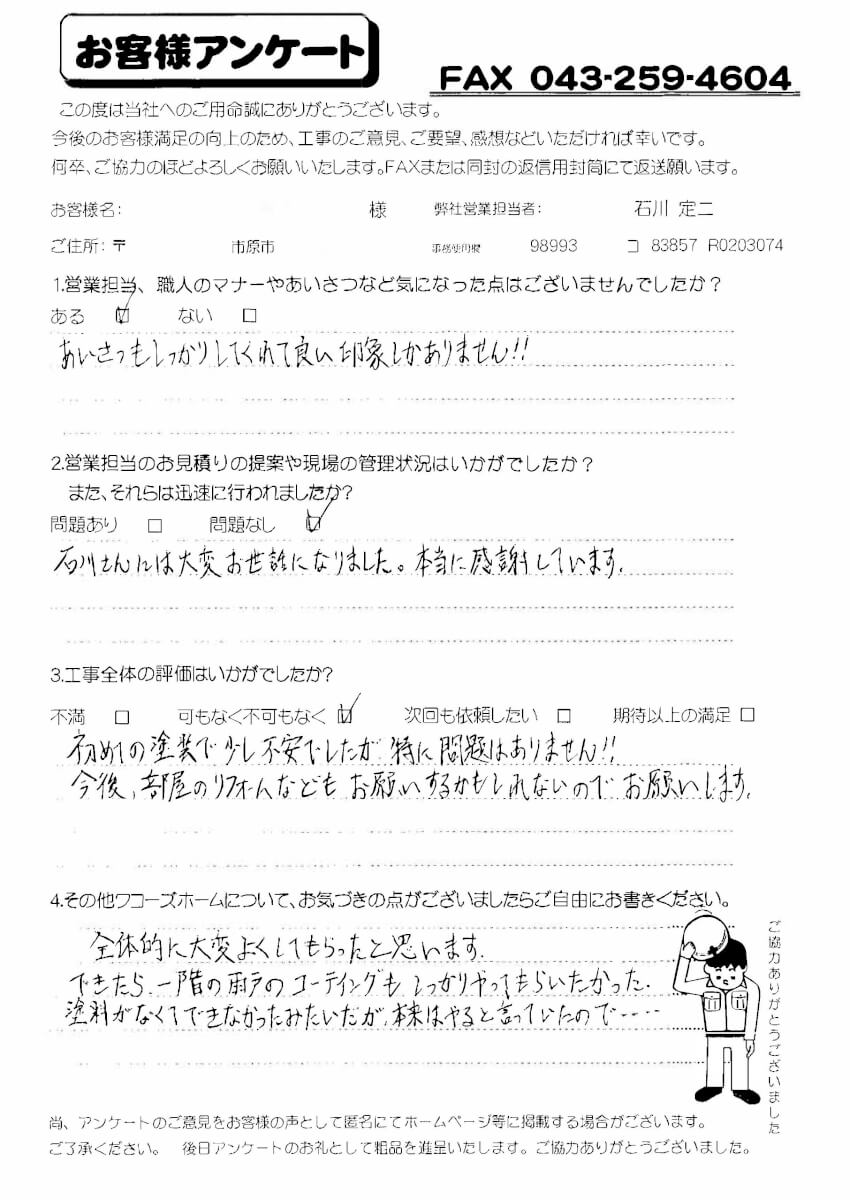 お客様アンケート
FAX 043-259-4604
この度は当社へのご用命誠にありがとうございます。
今後のお客様満足の向上のため、工事のご意見、ご要望、感想などいただければ幸いです。
何卒、ご協力のほどよろしくお願いいたします。FAXまたは同封の返信用封筒にて返送願います。
お客様名: 様 弊社営業担当者: 石川 定二
ご住所:〒 市原市 事務使用欄 98993 コ 83857 R0203074
1.営業担当、職人のマナーやあいさつなど気になった点はございませんでしたか?
ある ☑ ない □
あいさつもしっかりしてくれて良い印象しかありません!!
2.営業担当のお見積りの提案や現場の管理状況はいかがでしたか?
また、それらは迅速に行われましたか?
問題あり □ 問題なし ☑
石川さんには大変お世話になりました。本当に感謝しています.
3.工事全体の評価はいかがでしたか?
不満 □ 可もなく不可もなく ☑ 次回も依頼したい □ 期待以上の満足 □
初めての塗装で少し不安でしたが 特に問題はありません!!
今後、部屋のリフォームなども お願いするかもしれないので お願いします.
4.その他ワコーズホームについて、お気づきの点がございましたらご自由にお書きください。
全体的に大変よくしてもらったと思います.
できたら、一階の雨戸のコーティングも しっかりやってもらいたかった.
塗料がなくてできなかったみたいだが、本来はやると言っていたので‥‥
ご協力ありがとうございました
尚、アンケートのご意見をお客様の声として匿名にてホームページ等に掲載する場合がございます。
ご了承ください。 後日アンケートのお礼として粗品を進呈いたします。ご協力ありがとうございました。